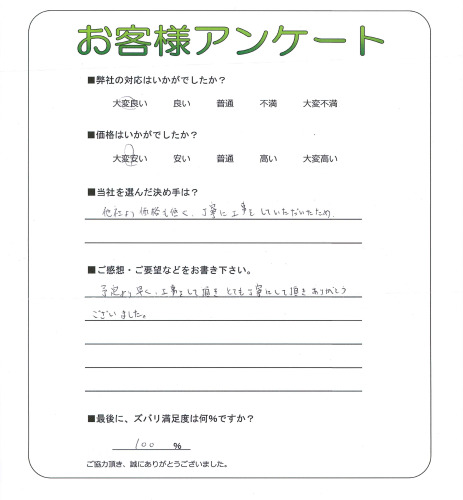 お客様アンケート
■弊社の対応はいかがでしたか？
大変良い 良い 普通 不満 大変不満
■価格はいかがでしたか？
大変安い 安い 普通 高い 大変高い
■当社を選んだ決め手は？
他社より価格も低く、丁寧に工事をしていただいたため。
■ご感想・ご要望などをお書き下さい。
予定より早く、工事をして頂き とても丁寧にして頂き ありがとう
ございました。
■最後に、ズバリ満足度は何%ですか？
100 %
ご協力頂き、誠にありがとうございました。